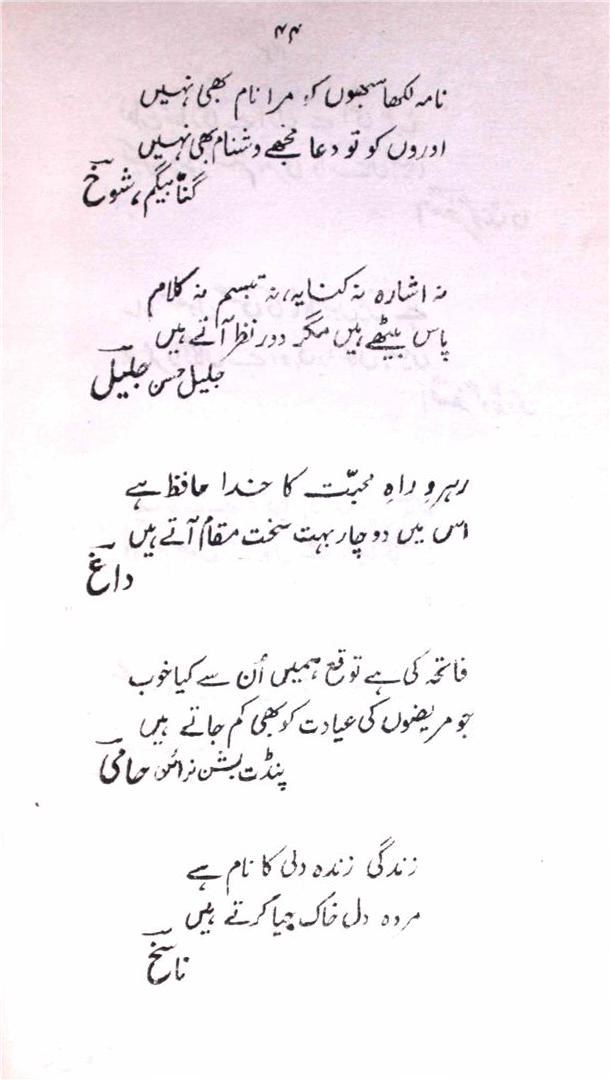 ۴۴
نامہ لکھا سبھوں کو مرا نام بھی نہیں
اوروں کو تو دعا مجھے دشنام بھی نہیں
گنّا بیگم، شوخؔ
نہ اشارہ نہ کنایہ، نہ تبسم نہ کلام
پاس بیٹھے ہیں مگر دور نظر آتے ہیں
جلیل حسن جلیلؔ
رہروِ راہِ محبّت کا خدا حافظ ہے
اس میں دو چار بہت سخت مقام آتے ہیں
داغؔ
فاتحہ کی ہے توقع ہمیں اُن سے کیا خوب
جو مریضوں کی عیادت کو بھی کم جاتے ہیں
پنڈت بشن نرائن حامیؔ
زندگی زندہ دلی کا نام ہے
مردہ دل خاک جیا کرتے ہیں
ناسخؔ